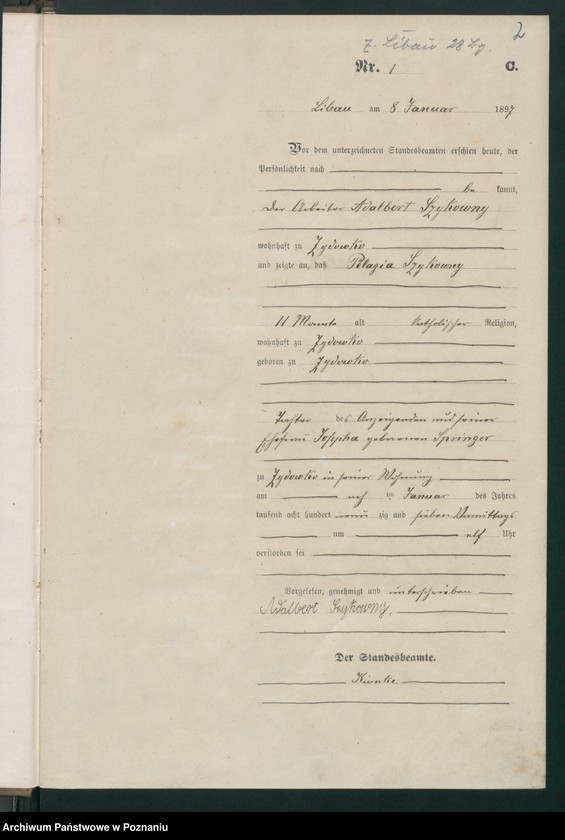 2
z. Libau 28 Bg.
Nr. 1 C.
Libau am 8 Januar 1897
Vor dem unterzeichneten Standesbeamten erschien heute, der
Persönlichkeit nach
be kannt,
der Arbeiter Adalbert Szykowny
wohnhaft zu Zydowko
und zeigte an, daß Pelagia Szykowny
11 Monate alt katholischer Religion,
wohnhaft zu Zydowko
geboren zu Zydowko
Tochter des Anzeigenden und seiner
Ehefrau Josepha geborenen Springer
zu Zydowko in seiner Wohnung
am Januar des Jahrs
tausend acht hundert neun zig und sieben Vormittags
um elf Uhr
verstorben sei
Vorgelesen, genehmigt und unterschrieben
Adalbert Szykowny.
Der Standesbeamte.
Archiwum Państwowe w Poznaniu